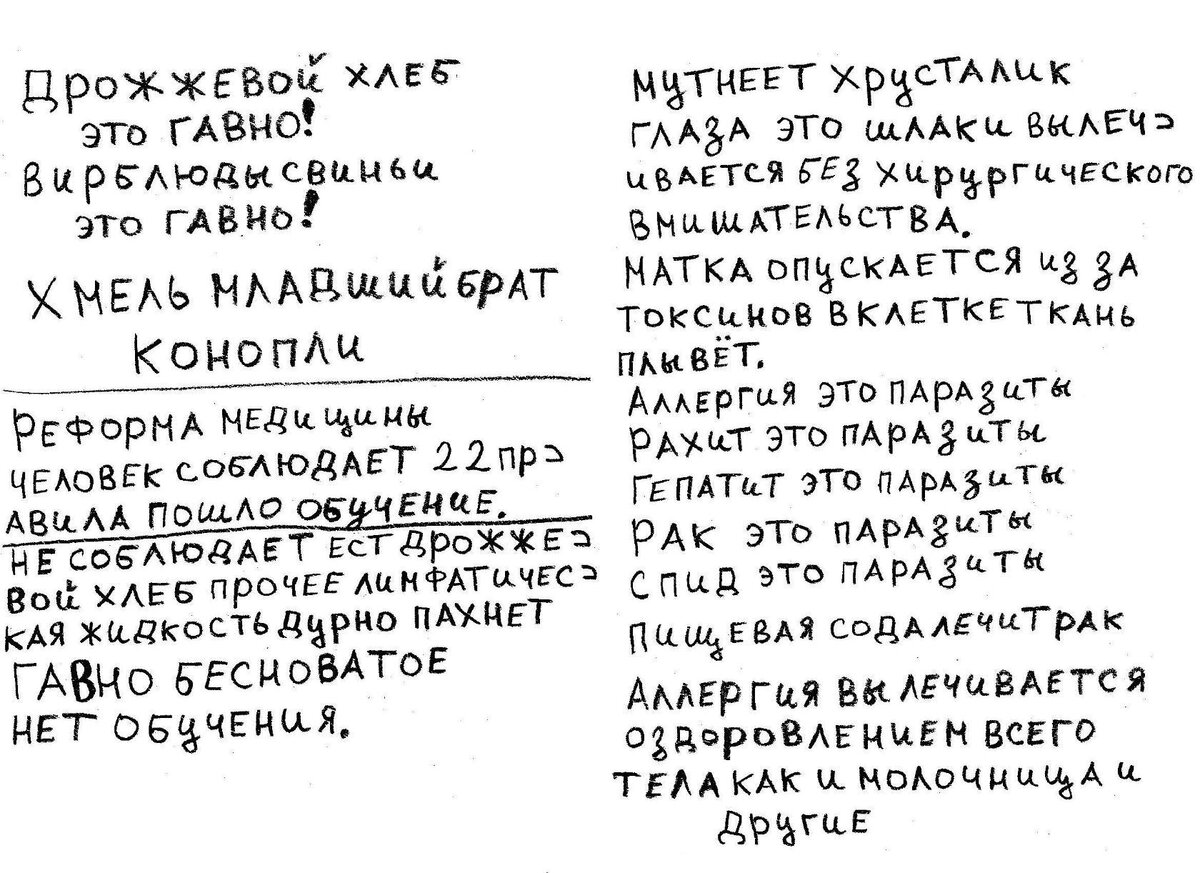 ДРОЖЖЕВОЙ ХЛЕБ
ЭТО ГАВНО!
ВИРБЛЮДЫ СВИНЬИ
ЭТО ГАВНО!
ХМЕЛЬ МЛАДШИЙ БРАТ
КОНОПЛИ
РЕФОРМА МЕДИЦИНЫ
ЧЕЛОВЕК СОБЛЮДАЕТ 22 ПР=
АВИЛА ПОШЛО ОБУЧЕНИЕ.
НЕ СОБЛЮДАЕТ ЕСТ ДРОЖЖЕ=
ВОЙ ХЛЕБ ПРОЧЕЕ ЛИМФАТИЧЕС=
КАЯ ЖИДКОСТЬ ДУРНО ПАХНЕТ
ГАВНО БЕСНОВАТОЕ
НЕТ ОБУЧЕНИЯ.
МУТНЕЕТ ХРУСТАЛИК
ГЛАЗА ЭТО ШЛАКИ ВЫЛЕЧ=
ИВАЕТСЯ БЕЗ ХИРУРГИЧЕСКОГО
ВМИШАТЕЛЬСТВА.
МАТКА ОПУСКАЕТСЯ ИЗ ЗА
ТОКСИНОВ В КЛЕТКЕ ТКАНЬ
ПЛЫВЁТ.
АЛЛЕРГИЯ ЭТО ПАРАЗИТЫ
РАХИТ ЭТО ПАРАЗИТЫ
ГЕПАТИТ ЭТО ПАРАЗИТЫ
РАК ЭТО ПАРАЗИТЫ
СПИД ЭТО ПАРАЗИТЫ
ПИЩЕВАЯ СОДА ЛЕЧИТ РАК
АЛЛЕРГИЯ ВЫЛЕЧИВАЕТСЯ
ОЗДОРОВЛЕНИЕМ ВСЕГО
ТЕЛА КАК И МОЛОЧНИЦА И
ДРУГИЕ